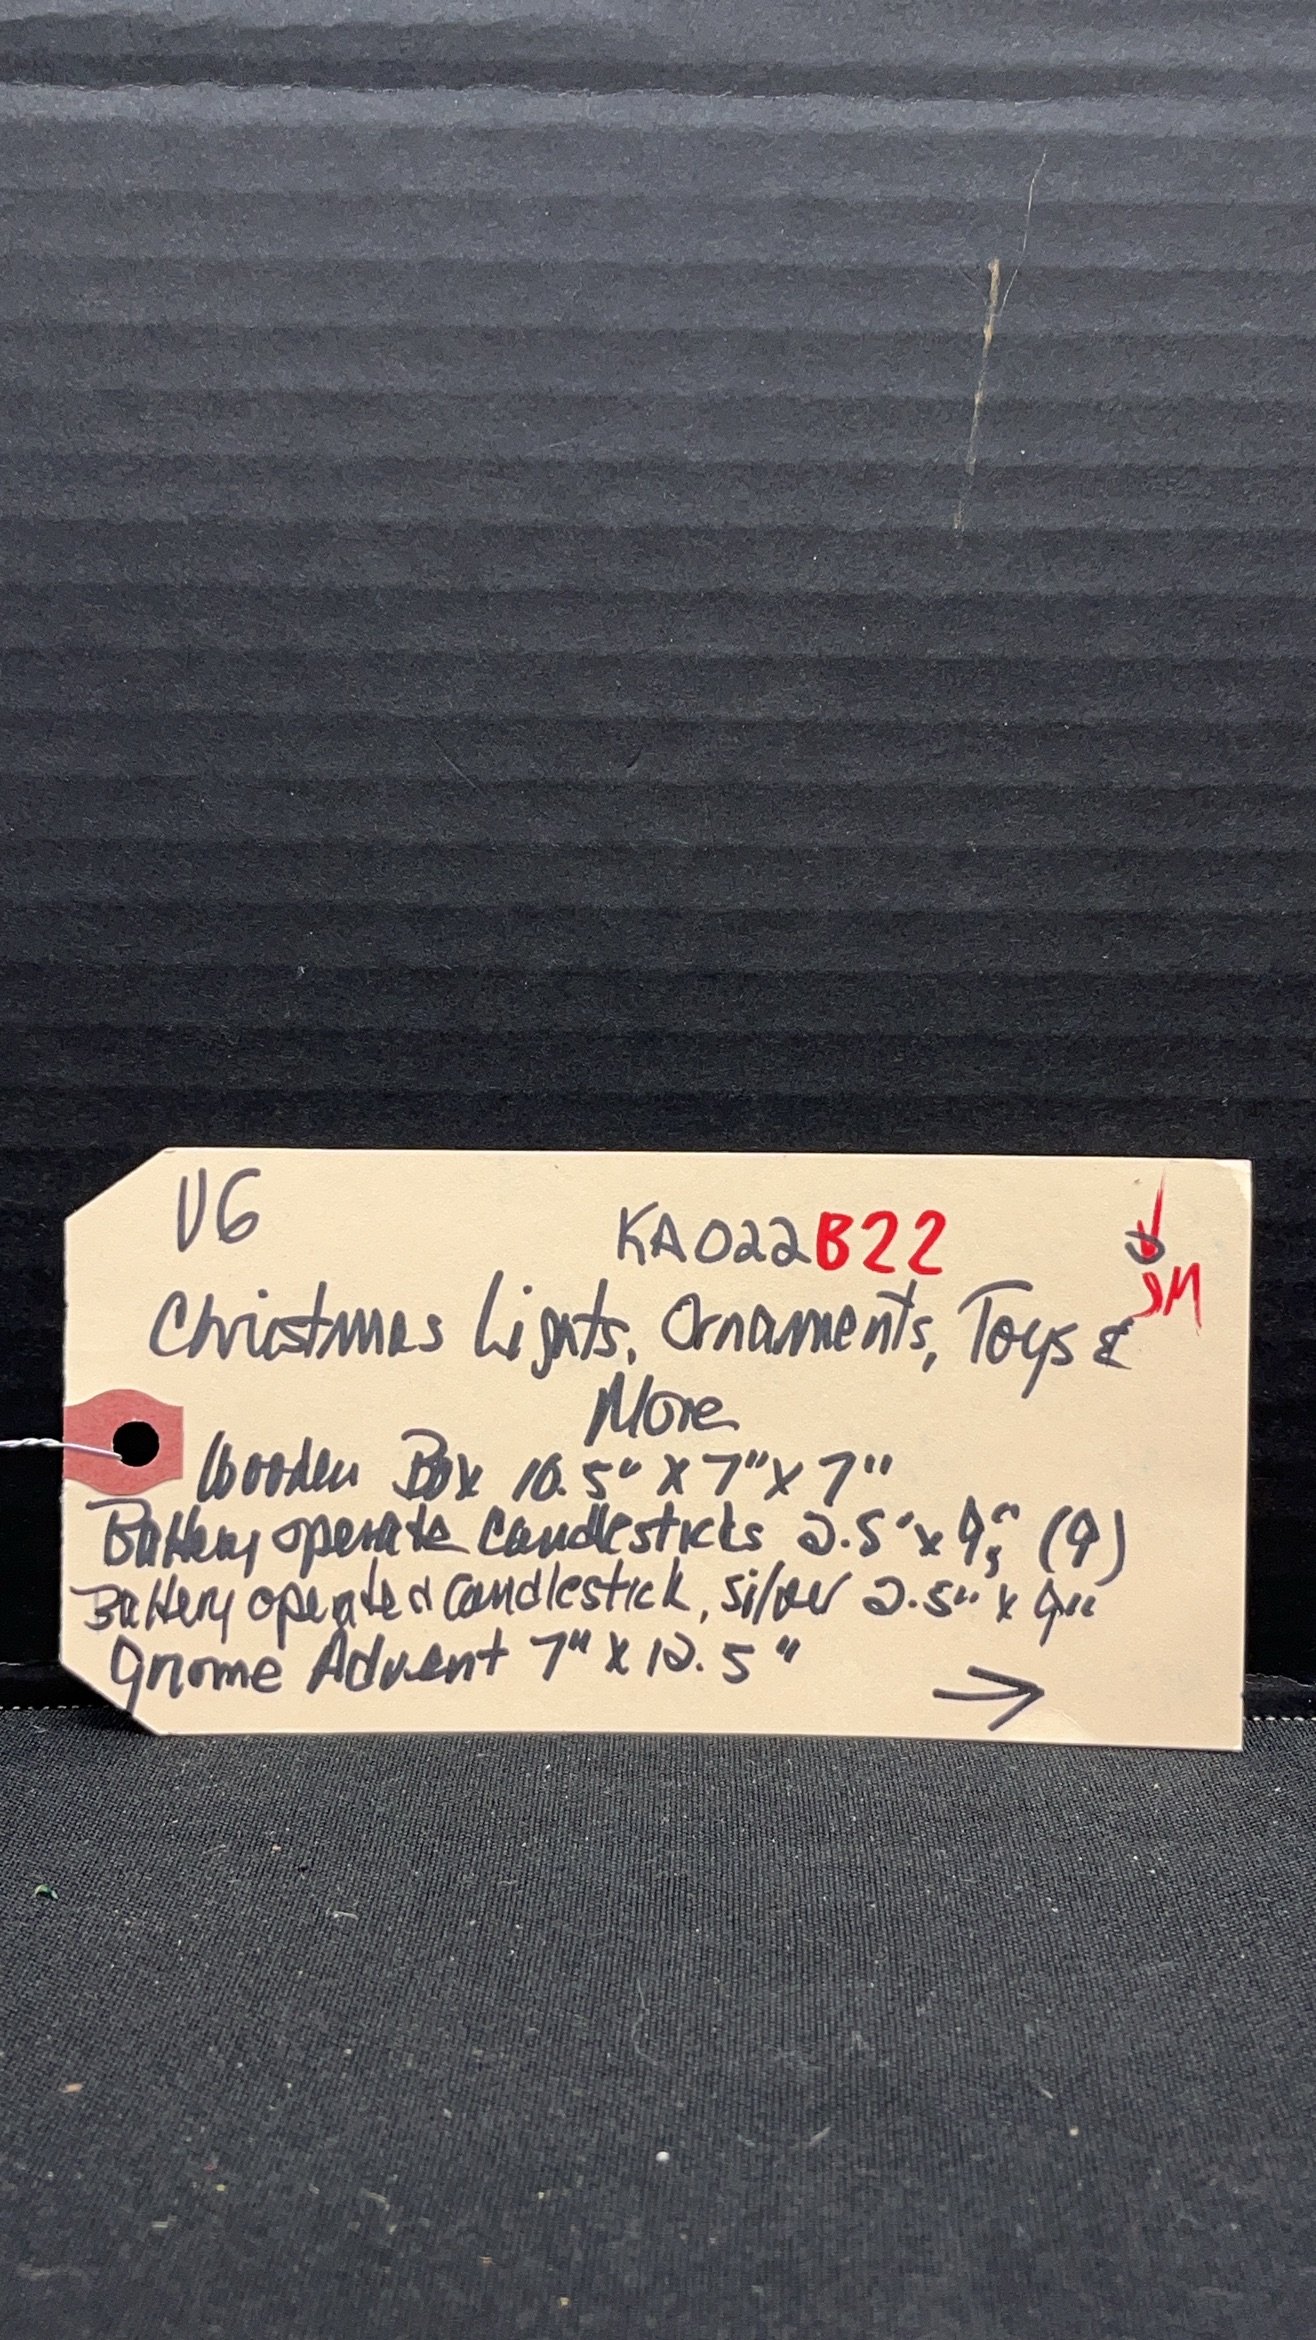 V6
KA022B22
JM
Christmas Lights, Ornaments, Toys &
More
Wooden Box 10.5" x 7" x 7"
Battery operate candlesticks 2.5" x 9" (9)
Battery operated candlestick, silver 2.5" x 9"
Gnome Advent 7" x 12.5"
→